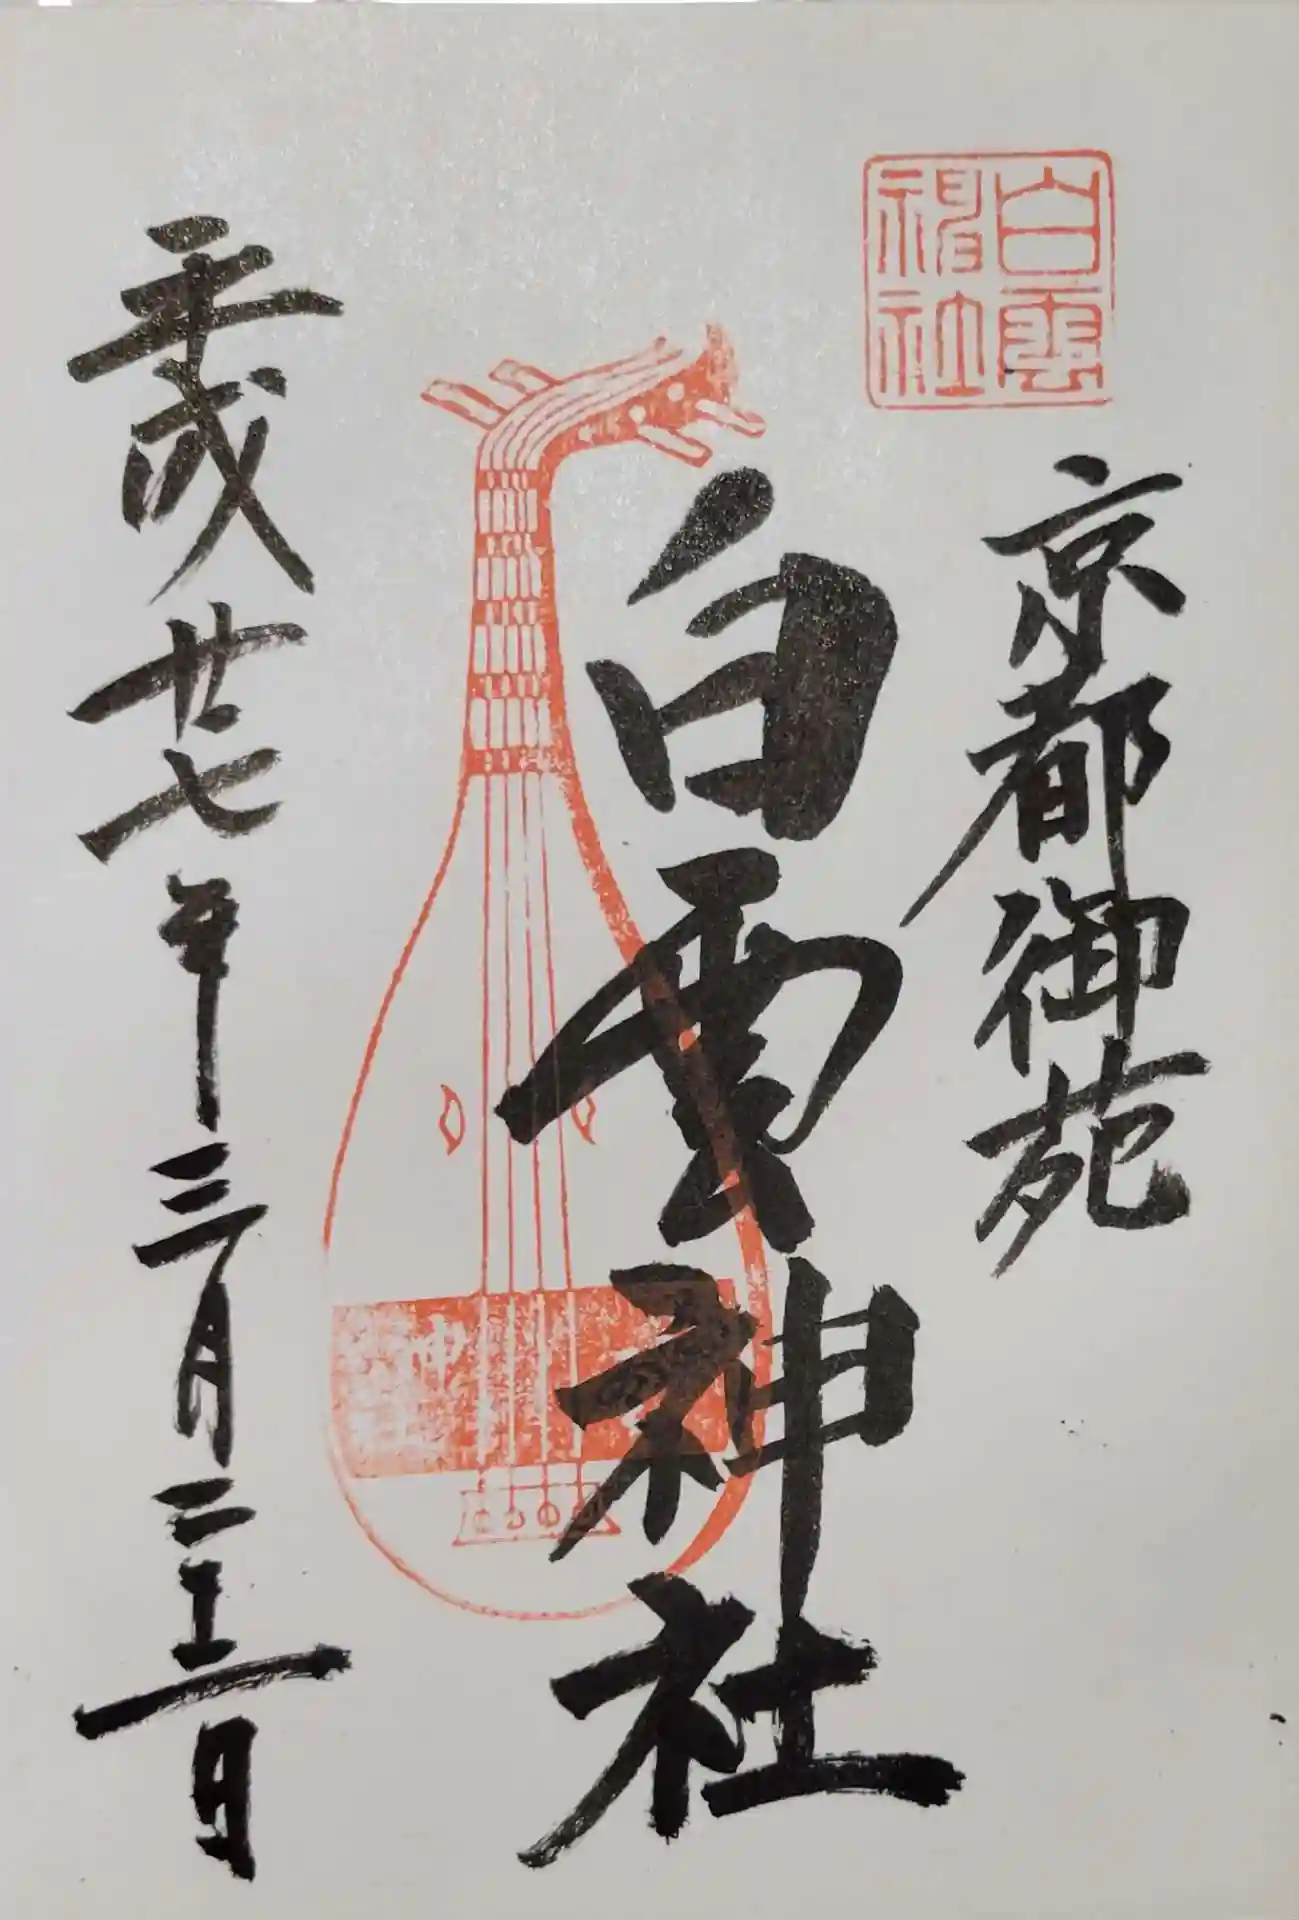 白雲
神社
京都御苑
白雲神社
平成廿七年三月二十二日